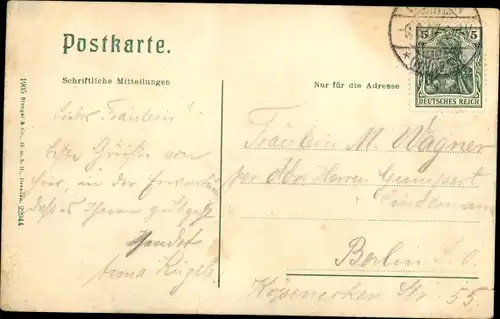 Postkarte.
5 5
DEUTSCHES REICH
Schriftliche Mitteilungen
Nur für die Adresse
1905 Stengel & Co., G. m. b. H., Dresden. 28044
Liebes Fräulein!
Beste Grüße von
hier, in der
daß es Ihnen gut geht
sendet
Anna
Fräulein M. Wagner
per Adr. Herren Gumpert
Berlin S. O.
Köpenicker Str. 55